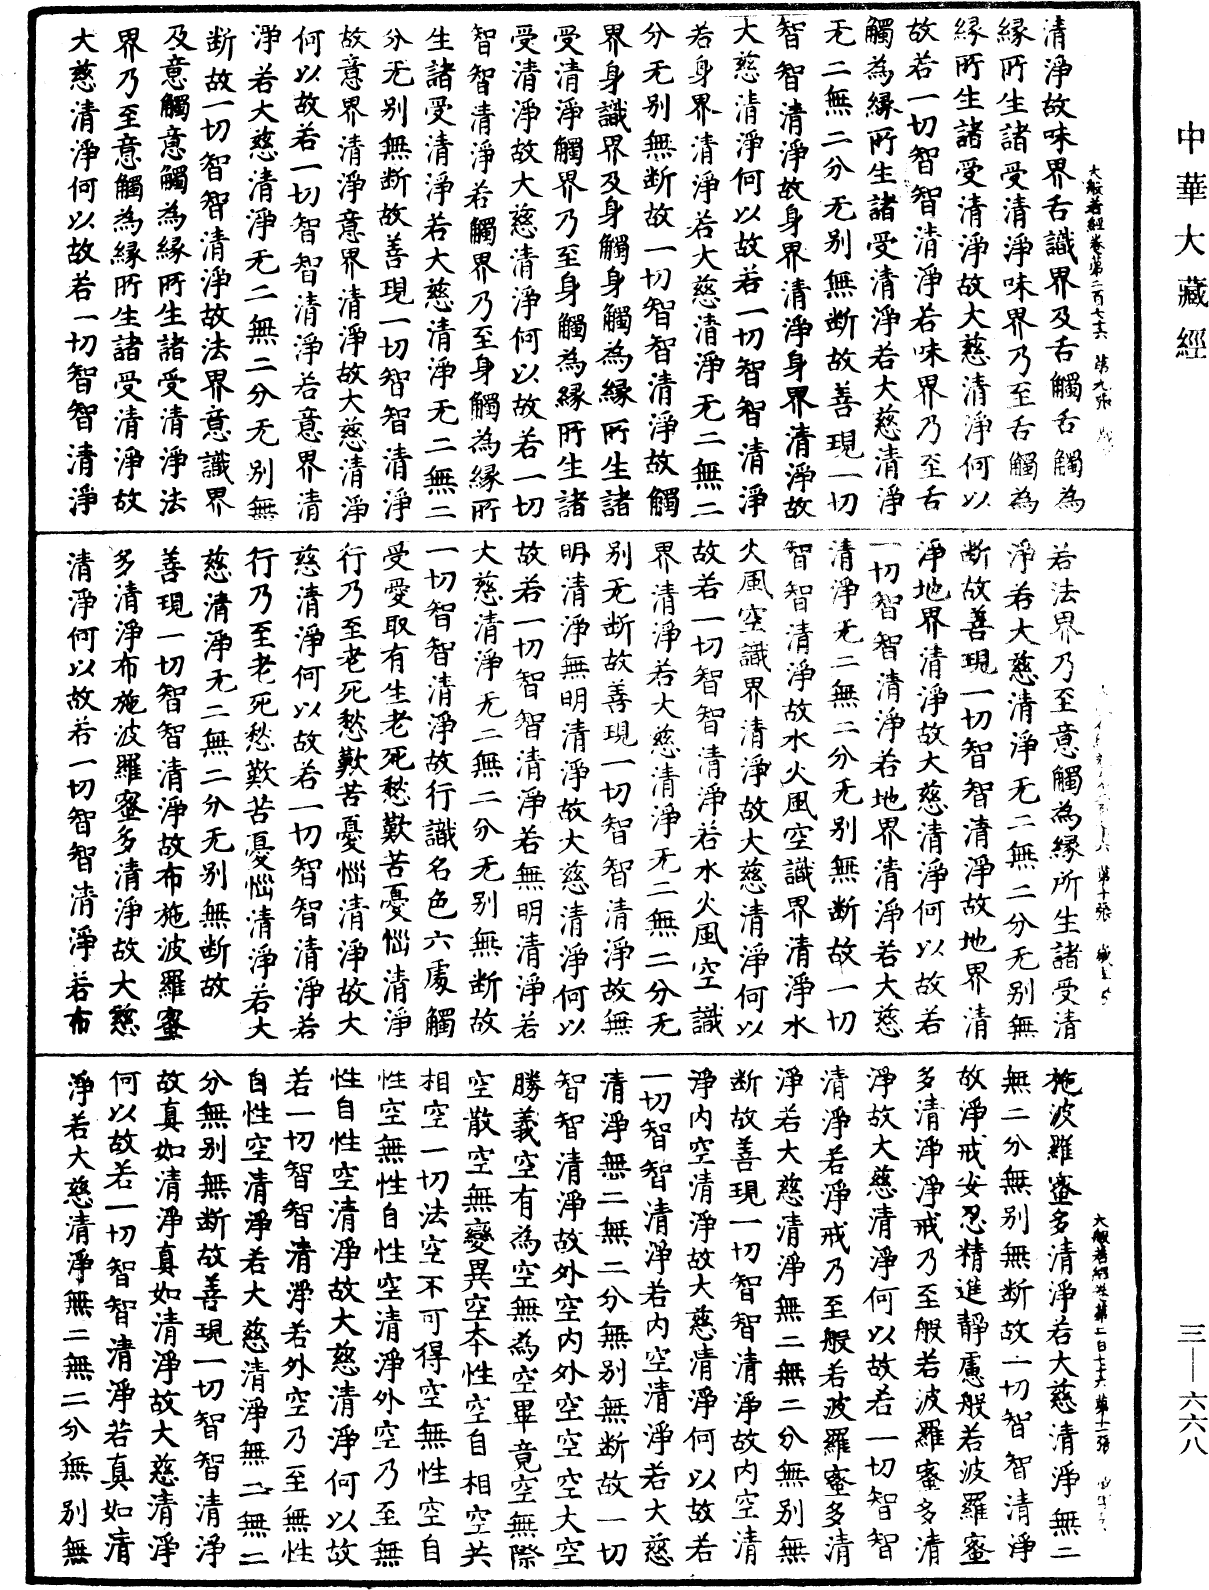 中華大藏經
大般若經卷第二百七十六 第九張
清淨故味界舌識界及舌觸舌觸為
緣所生諸受清淨味界乃至舌觸為
緣所生諸受清淨故大慈清淨何以
故若一切智智清淨若味界乃至舌
觸為緣所生諸受清淨若大慈清淨
无二無二分无别無断故善現一切
智智清淨故身界清淨身界清淨故
大慈清淨何以故若一切智智清淨
若身界清淨若大慈清淨无二無二
分无别無断故一切智智清淨故觸
界身識界及身觸身觸為緣所生諸
受清淨觸界乃至身觸為緣所生諸
受清淨故大慈清淨何以故若一切
智智清淨若觸界乃至身觸為緣所
生諸受清淨若大慈清淨无二無二
分无别無断故善現一切智智清淨
故意界清淨意界清淨故大慈清淨
何以故若一切智智清淨若意界清
淨若大慈清淨无二無二分无别無
断故一切智智清淨故法界意識界
及意觸意觸為緣所生諸受清淨法
界乃至意觸為緣所生諸受清淨故
大慈清淨何以故若一切智智清淨
第十張
若法界乃至意觸為緣所生諸受清
淨若大慈清淨无二無二分无别無
断故善現一切智智清淨故地界清
淨地界清淨故大慈清淨何以故若
一切智智清淨若地界清淨若大慈
清淨无二無二分无别無断故一切
智智清淨故水火風空識界清淨水
火風空識界清淨故大慈清淨何以
故若一切智智清淨若水火風空識
界清淨若大慈清淨无二無二分无
别无断故善現一切智智清淨故無
明清淨無明清淨故大慈清淨何以
故若一切智智清淨若無明清淨若
大慈清淨无二無二分无别無断故
一切智智清淨故行識名色六處觸
受愛取有生老死愁歎苦憂惱清淨
行乃至老死愁歎苦憂惱清淨故大
慈清淨何以故若一切智智清淨若
行乃至老死愁歎苦憂惱清淨若大
慈清淨无二無二分无别無断故
善現一切智智清淨故布施波羅蜜
多清淨布施波羅蜜多清淨故大慈
清淨何以故若一切智智清淨若布
大般若經卷第二百七十六 第十一張
施波羅蜜多清淨若大慈清淨無二
無二分無别無断故一切智智清淨
故淨戒安忍精進靜慮般若波羅蜜
多清淨淨戒乃至般若波羅蜜多清
淨故大慈清淨何以故若一切智智
清淨若淨戒乃至般若波羅蜜多清
淨若大慈清淨無二無二分無别無
断故善現一切智智清淨故内空清
淨内空清淨故大慈清淨何以故若
一切智智清淨若内空清淨若大慈
清淨無二無二分無别無断故一切
智智清淨故外空内外空空空大空
勝義空有為空無為空畢竟空無際
空散空無變異空本性空自相空共
相空一切法空不可得空無性空自
性空無性自性空清淨外空乃至無
性自性空清淨故大慈清淨何以故
若一切智智清淨若外空乃至無性
自性空清淨若大慈清淨無二無二
分無别無断故善現一切智智清淨
故真如清淨真如清淨故大慈清淨
何以故若一切智智清淨若真如清
淨若大慈清淨無二無二分無别無
三—六六八